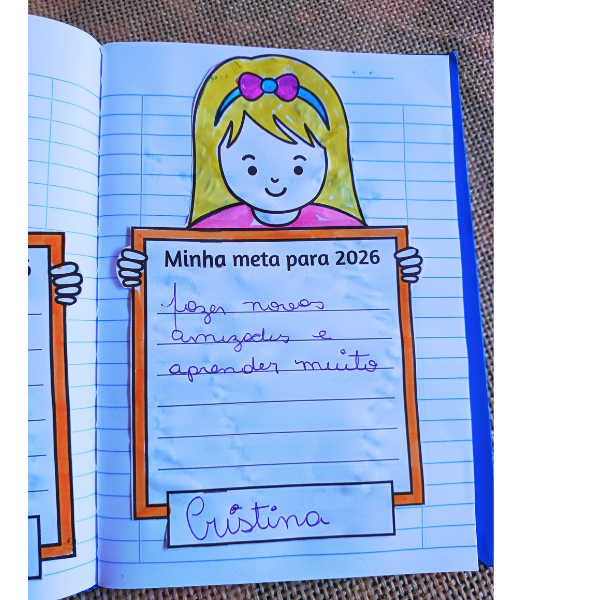 Minha meta para 2026
fazer novas
amizades e
aprender muito
Cristina
6